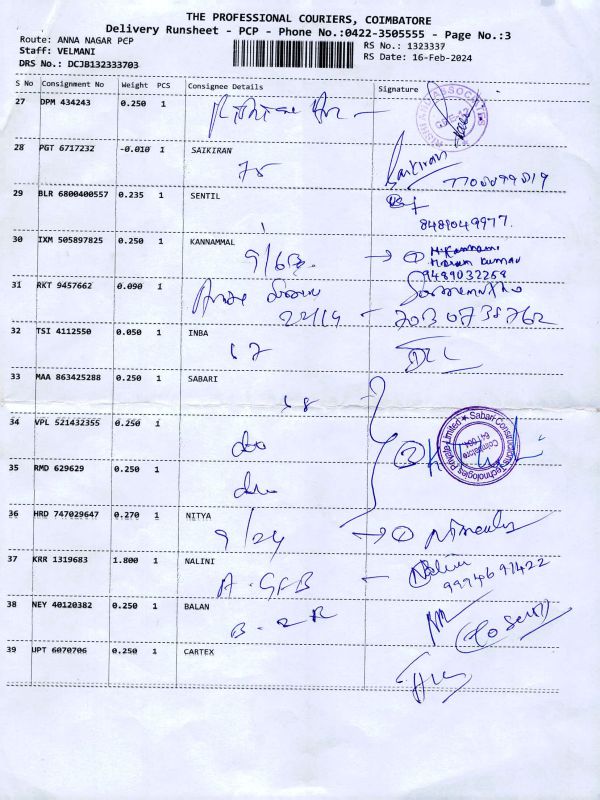 THE PROFESSIONAL COURIERS, COIMBATORE
Delivery Runsheet - PCP - Phone No.:0422-3505555 - Page No.:3
Route: ANNA NAGAR PCP
Staff: VELMANI
DRS No.: DCJB132333703
RS No.: 1323337
RS Date: 16-Feb-2024
S No Consignment No Weight PCS Consignee Details Signature
27 DPM 434243 0.250 1
28 PGT 6717232 -0.010 1 SAIKIRAN
75 Saikiran
29 BLR 6800400557 0.235 1 SENTIL
8489049977.
30 IXM 505897825 0.250 1 KANNAMMAL
9/6B. → 1
9489032258
31 RKT 9457662 0.090 1
22/19
32 TSI 4112550 0.050 1 INBA
17
33 MAA 863425288 0.250 1 SABARI
18
34 VPL 521432355 0.250 1
do 2
Sabari Constructions Technologies Private Limited
Coimbatore
641 004.
35 RMD 629629 0.250 1
do
36 HRD 747029647 0.270 1 NITYA
9/24 → 1
37 KRR 1319683 1.800 1 NALINI
A-GFB - Nalini
9974697422
38 NEY 40120382 0.250 1 BALAN
B-2R
39 UPT 6070706 0.250 1 CARTEX